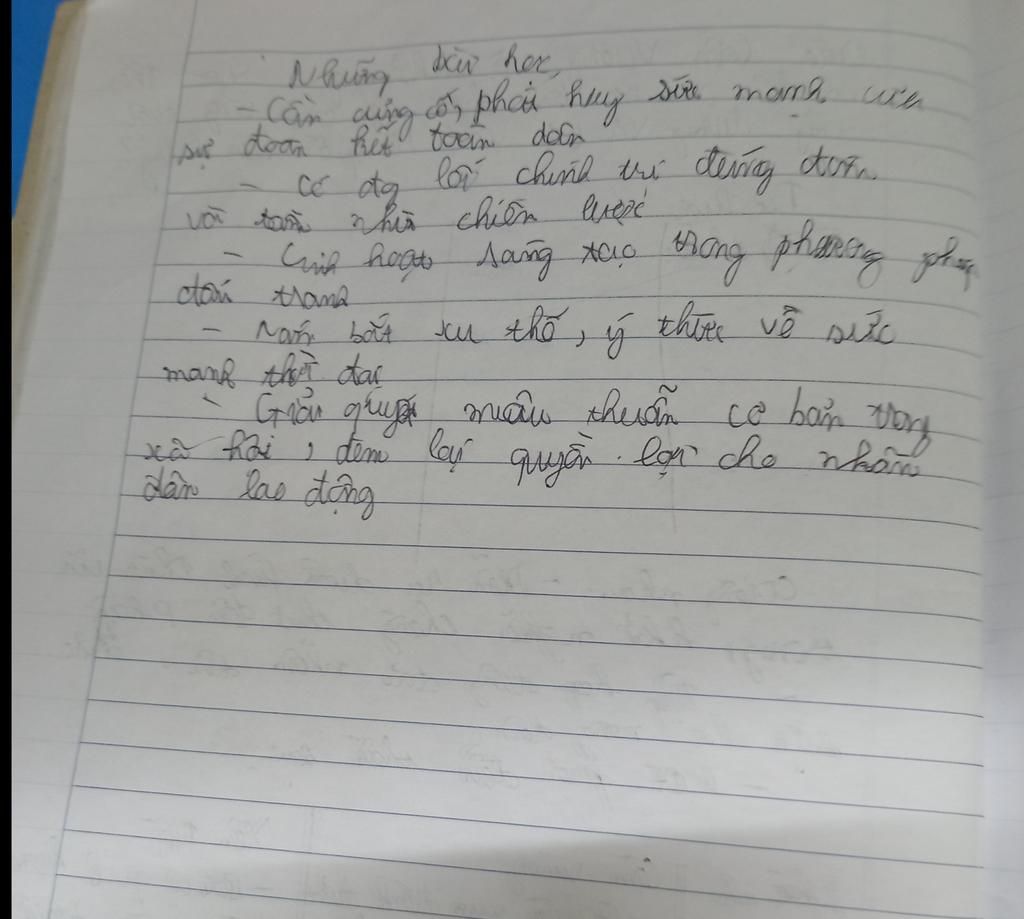 Những bài học,
- Cần củng cố, phát huy sức mạnh của
sự đoàn kết toàn dân
- Có đg lối chính trị đúng đắn
và tầm nhìn chiến lược
- Linh hoạt sáng tạo trong phương pháp
đấu tranh
- Nắm bắt xu thế, ý thức về sức
mạnh thời đại
- Giải quyết mâu thuẫn cơ bản trong
xã hội, đem lại quyền lợi cho nhân
dân lao động